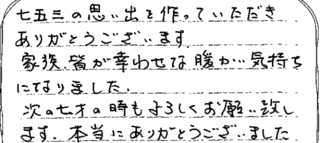 七五三の思い出を作っていただき
ありがとうございます
家族皆が幸わせな暖かい気持ち
になりました.
次の七才の時もよろしくお願い致し
ます. 本当にありがとうございました